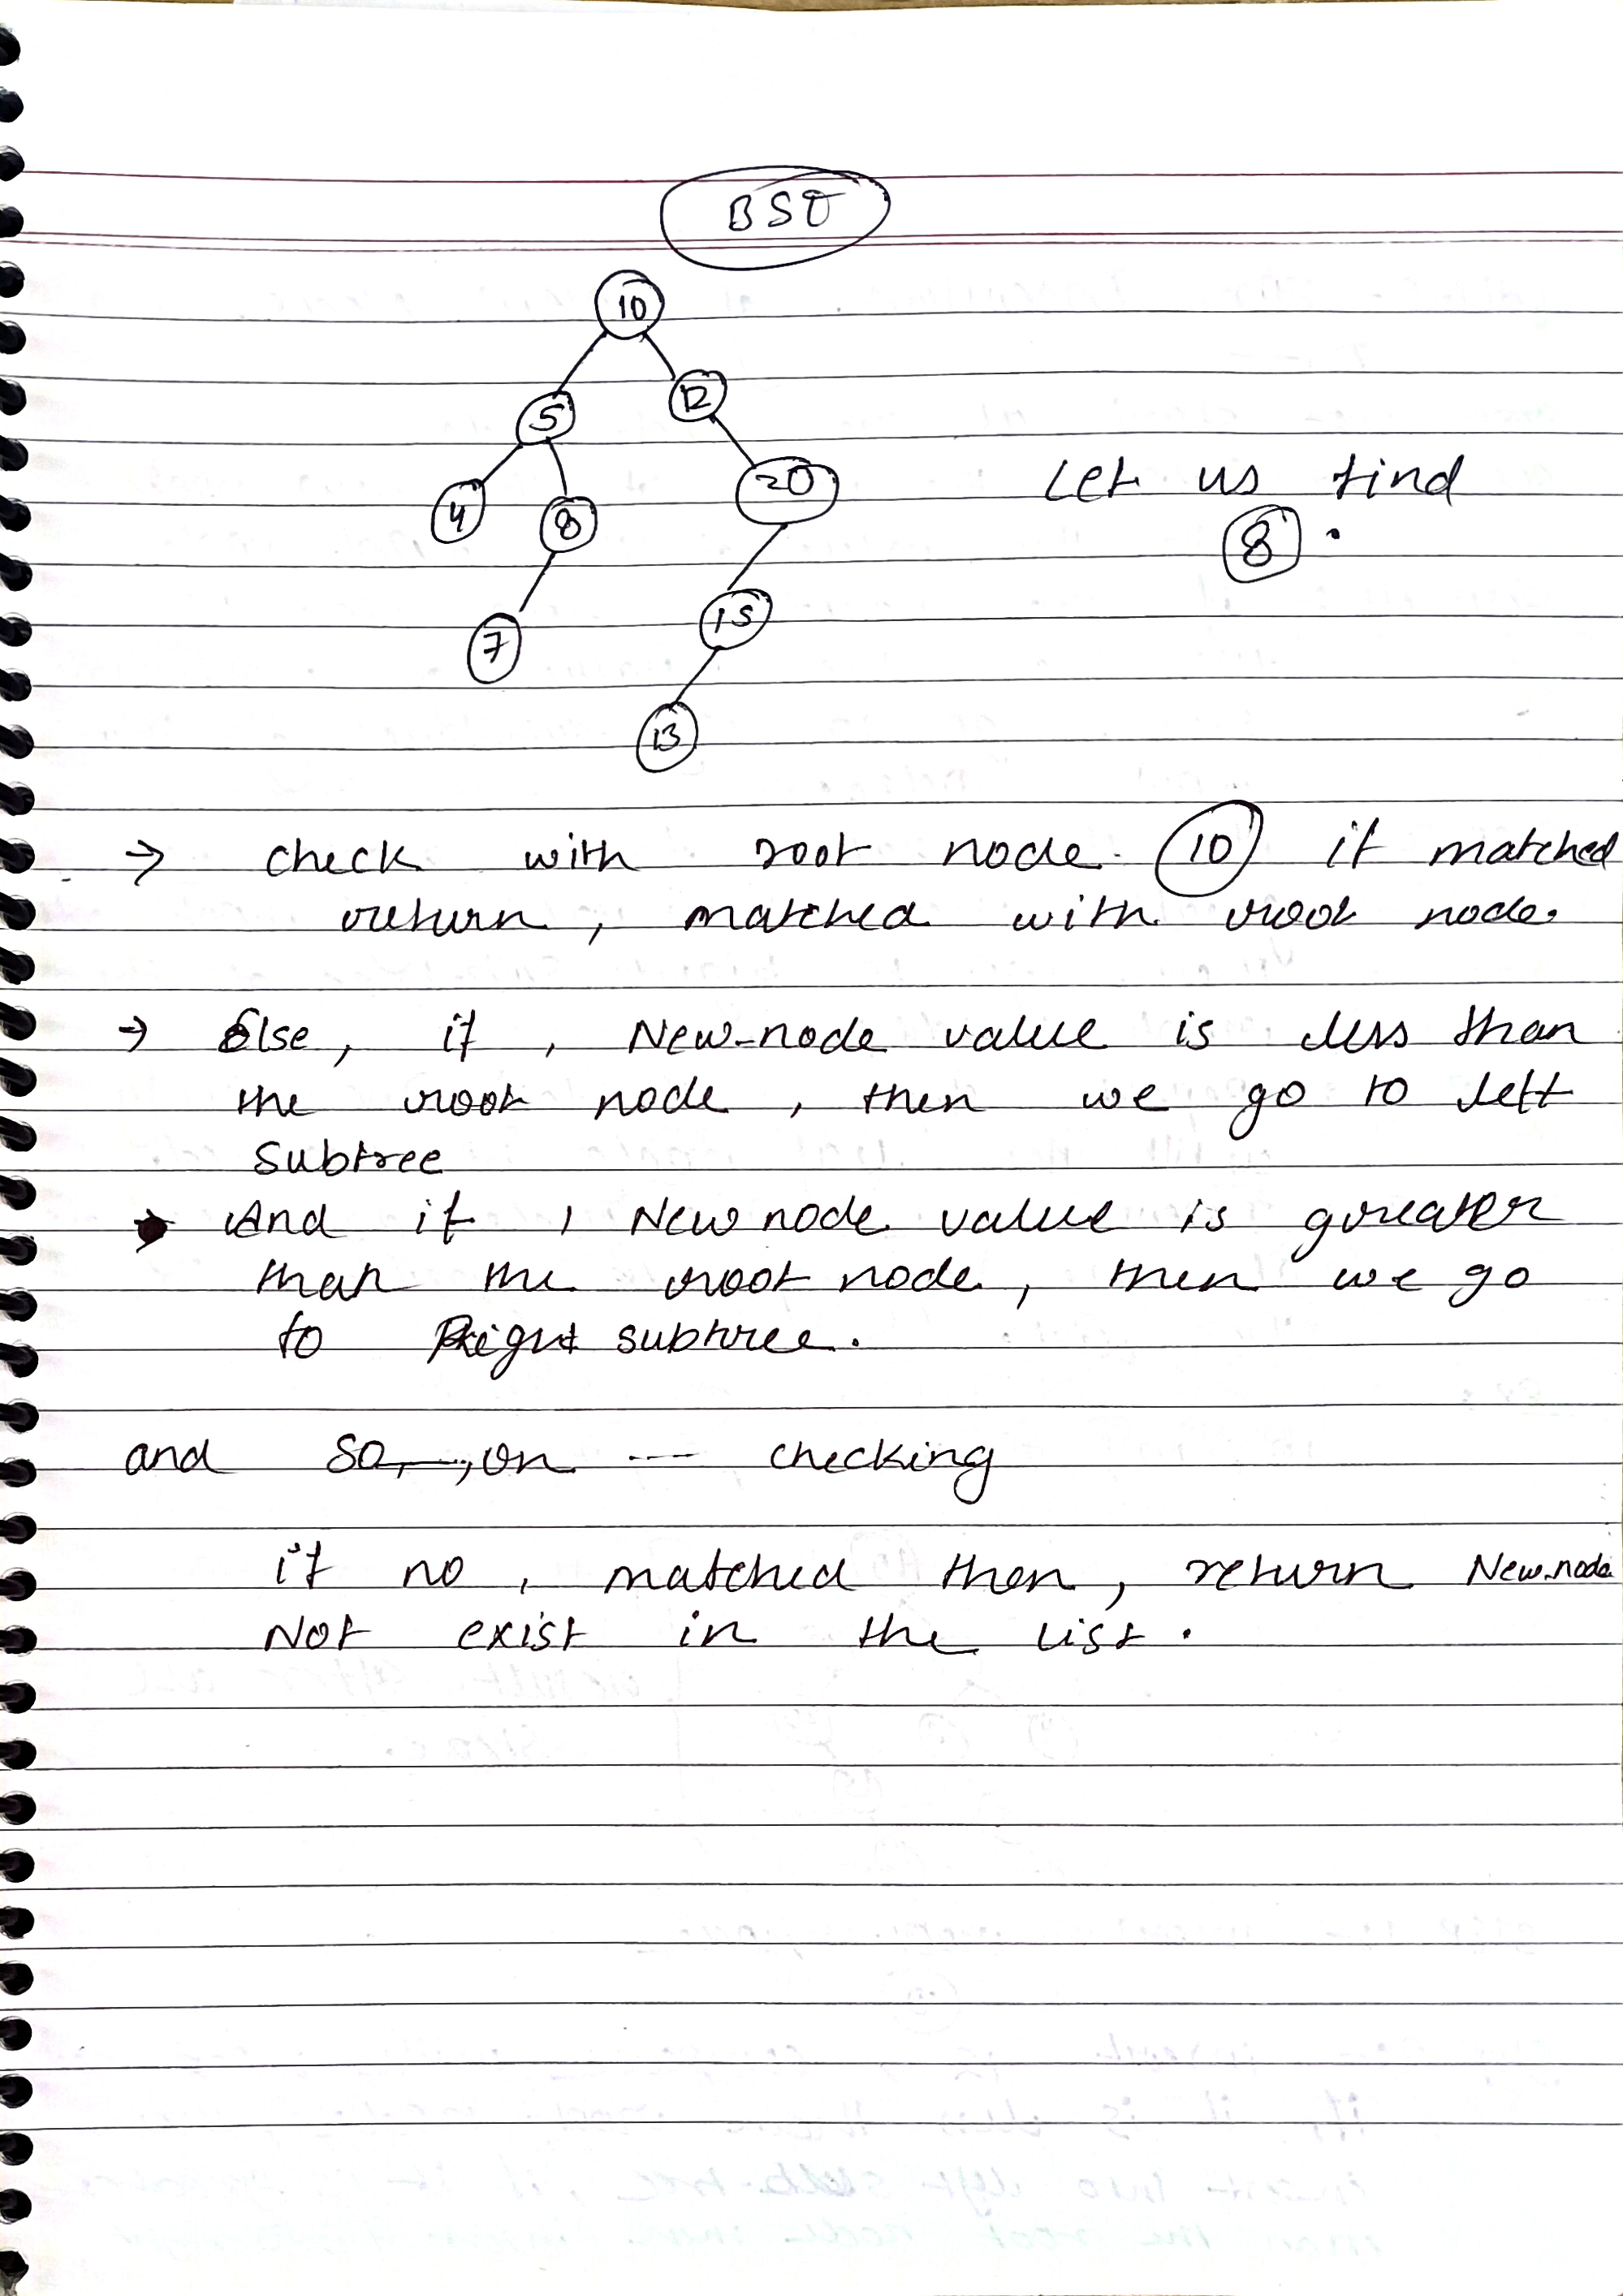 BST
10
5
12
4
8
20
Let us find
8.
7
15
13
→ check with root node 10 if matched
return, matched with root node.
→ Else, if, New-node value is less than
the root node, then we go to left
subtree
And if, New node value is greater
than the root node, then we go
to Right subtree.
and so, on --- checking
if no, matched then, return New-node
Not exist in the list.